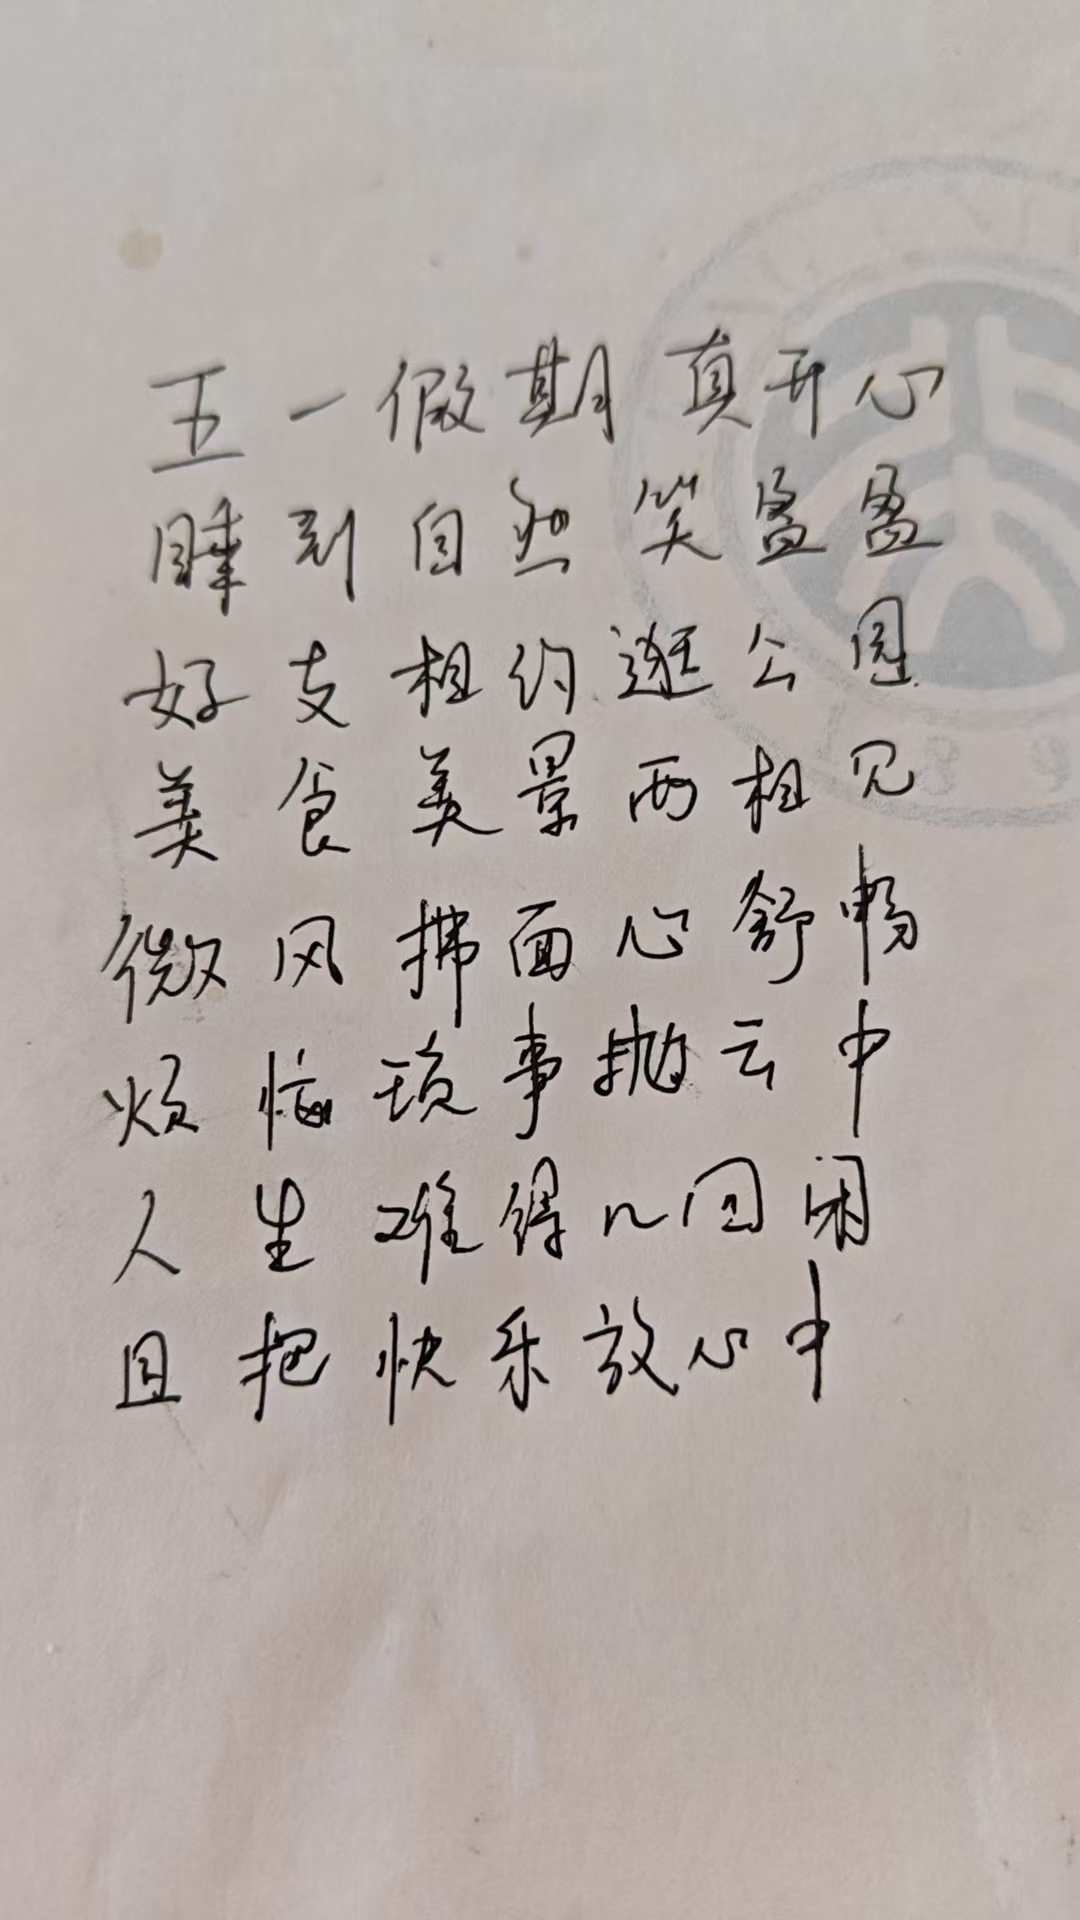 五一假期真开心
睡到自然笑盈盈
好友相约逛公园
美食美景两相见
微风拂面心舒畅
烦恼琐事抛云中
人生难得几回闲
且把快乐放心中